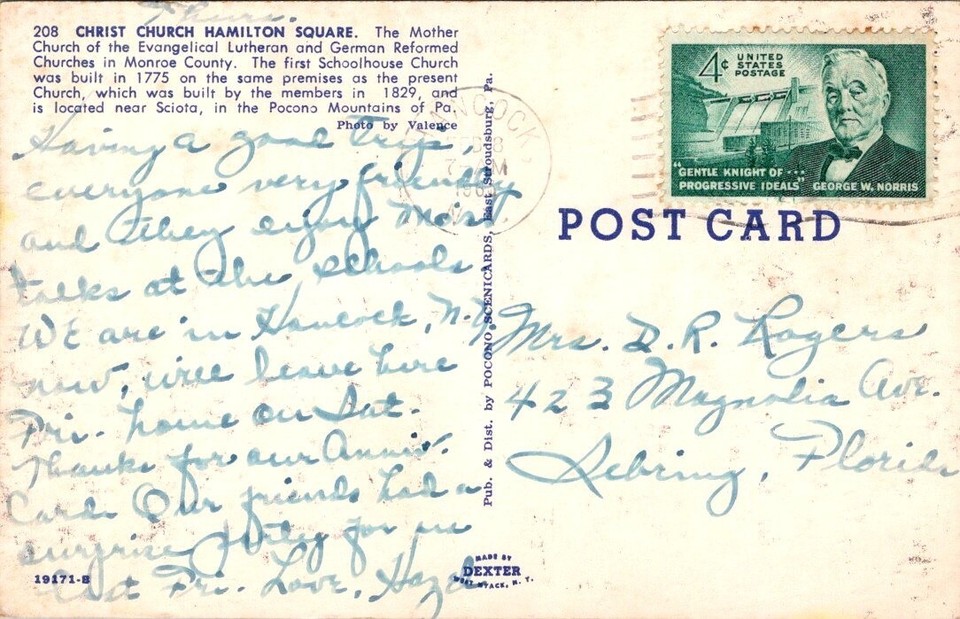 Thurs.
208 CHRIST CHURCH HAMILTON SQUARE. The Mother
Church of the Evangelical Lutheran and German Reformed
Churches in Monroe County. The first Schoolhouse Church
was built in 1775 on the same premises as the present
Church, which was built by the members in 1829, and
is located near Sciota, in the Pocono Mountains of Pa.
Photo by Valence
Having a good trip,
everyone very friendly
and they enjoy Moist
talks at the schools
WE are in Hancock, N.Y.
now, will leave here
Fri. home on Sat.
Thanks for our Anniv.
Card. Our friends had a
surprise party for us
last Fri. Love, Hazel
19171-B
Pub. & Dist. by POCONO SCENICARDS, East Stroudsburg, Pa.
MADE BY
DEXTER
WEST NYACK, N. Y.
HANCOCK
4¢ UNITED
STATES
POSTAGE
"GENTLE KNIGHT OF ...
PROGRESSIVE IDEALS" GEORGE W. NORRIS
POST CARD
Mrs. D. R. Rogers
423 Magnolia Ave.
Sebring, Florida